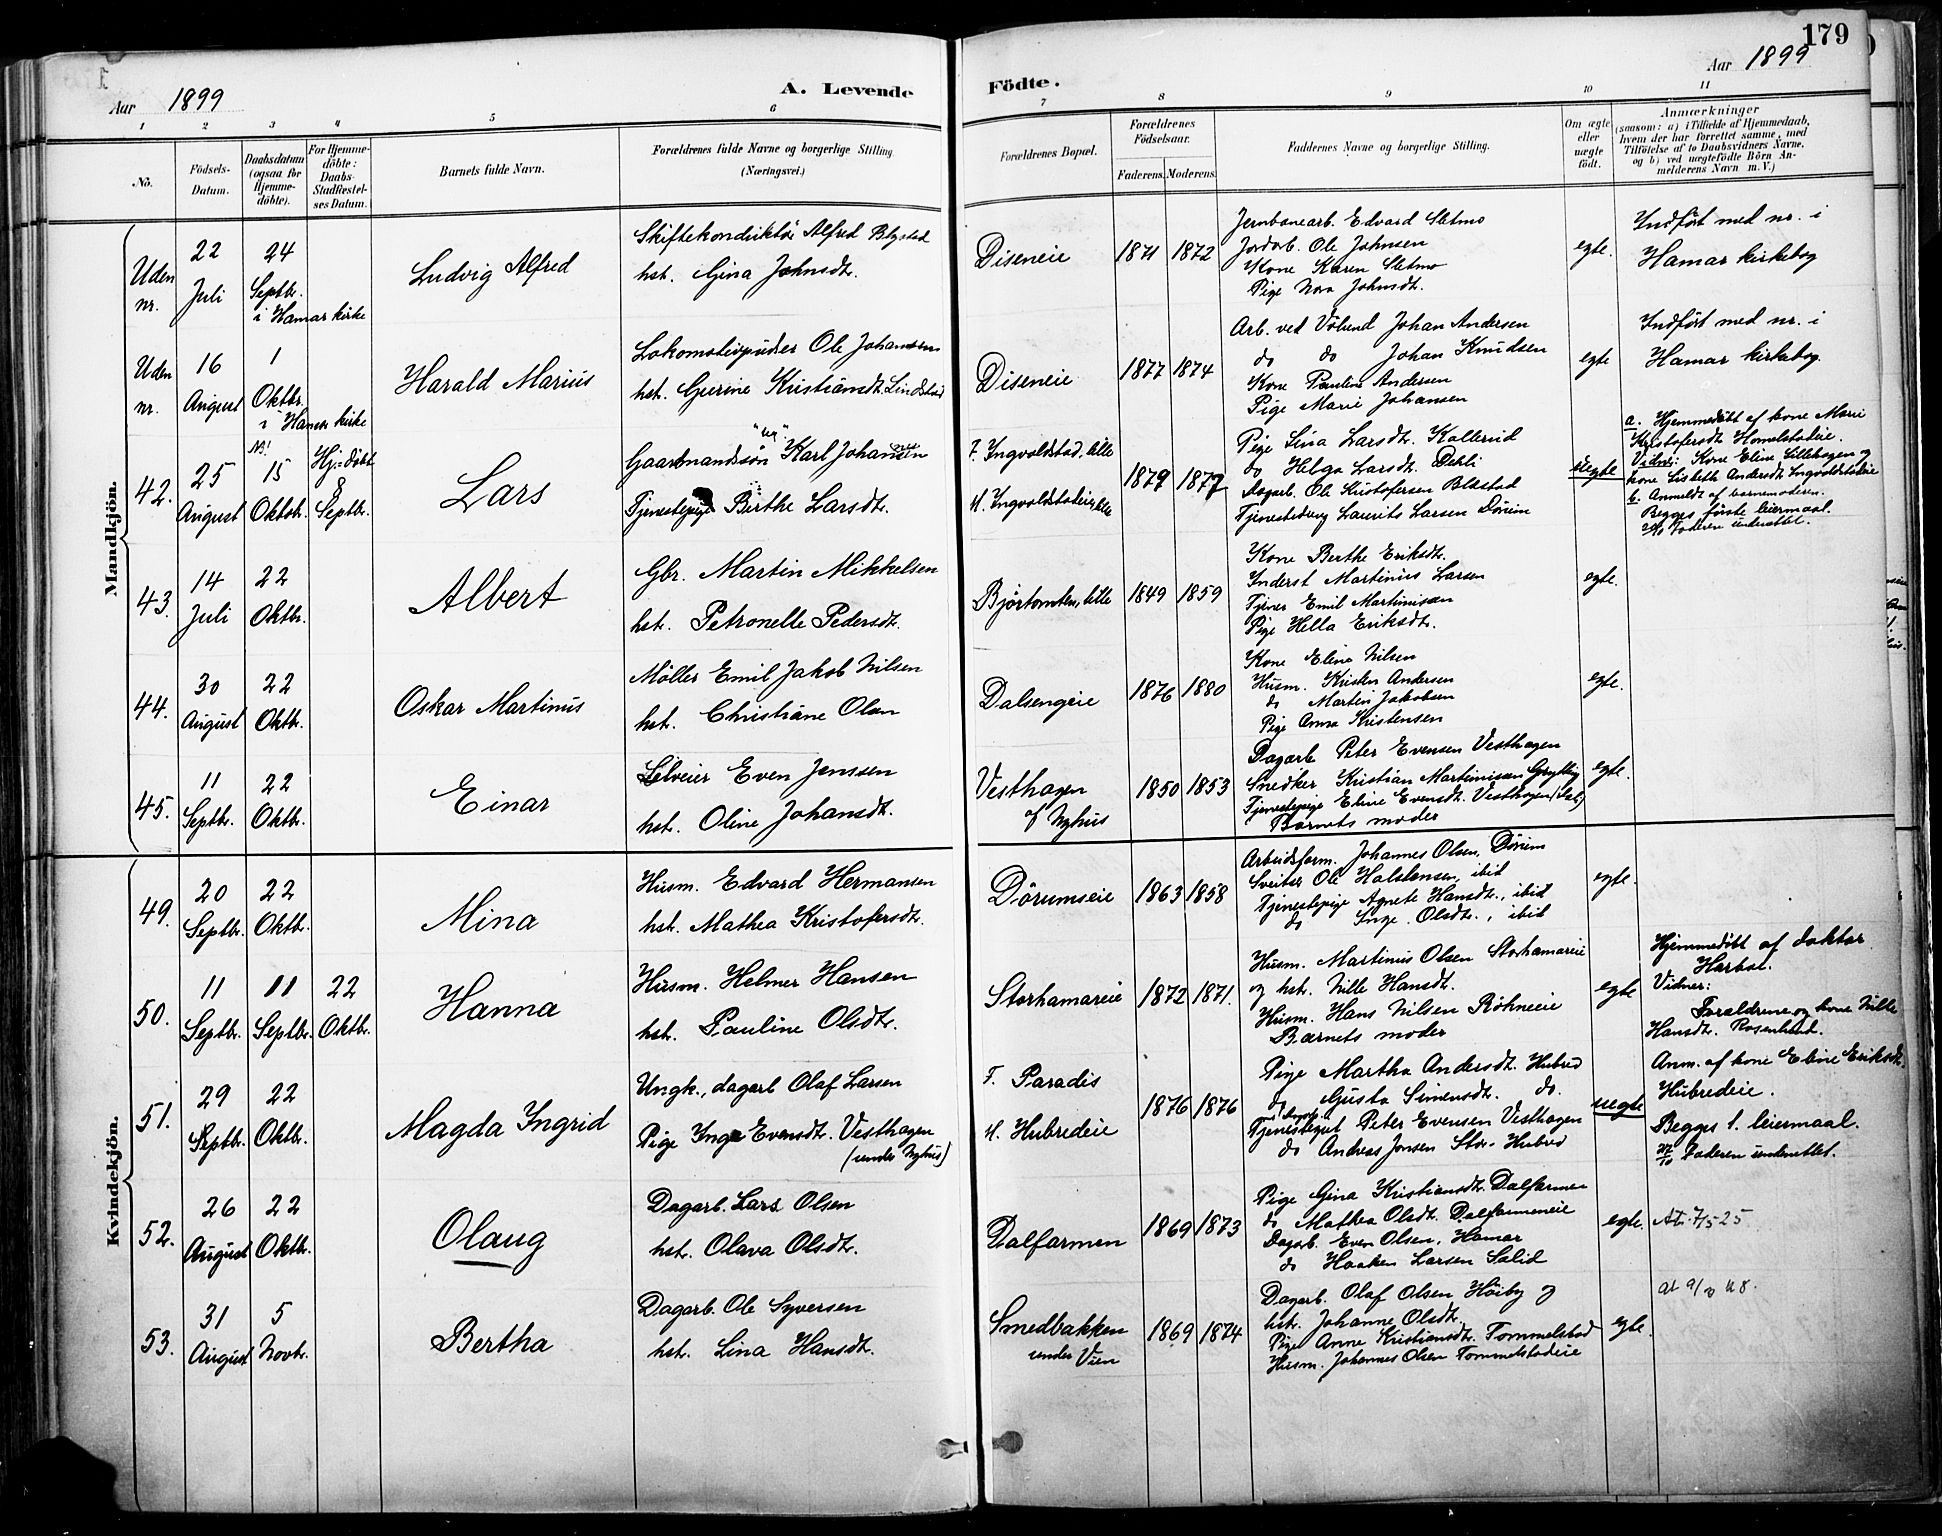 179
Aar 1899
A. Levende
Födte.
Aar 1899
1 2 3 4 5 6 7 8 9 10 11
No.
Födsels-Datum.
Daabsdatum (ogsaa for Hjemme-döbte).
For Hjemme-döbte: Daabs-Stadfæstel-ses Datum.
Barnets fulde Navn.
Forældrenes fulde Navne og borgerlige Stilling (Næringsvei.)
Forældrenes Bopæl.
Forældrenes Födselsaar.
Faderens. Moderens.
Faddernes Navne og borgerlige Stilling.
Om ægte eller uægte födt.
Anmærkninger
(saasom: a) i Tilfælde af Hjemmedaab,
hvem der har forrettet samme, med
Tilföielse af to Daabsvidners Navne,
og b) ved uægtefödte Börn An-
melderens Navn m. V.)
Mandkjön.
Uden nr.
22 Juli
24 Septbr. i Hamar kirke
Ludvig Alfred
Skiftekonduktör Alfred Blystad
hst. Gina Johnsdt.
Diseneie
1871 1872
Jernbanearb. Edvard Sletmo
Jordarb. Ole Johnsen
Kone Karen Sletmo
Pige Nora Johnsdt.
egte.
Indført med nr. i
Hamar kirkebog
Uden nr.
16 August
1 Oktbr. i Hamar kirke
Harald Marius
Lokomotivpudser Ole Johansen
hst. Gurine Kristiansdt. Lindstad
Diseneie
1877 1874
Arb. ved Völund Johan Andersen
do do Johan Knudsen
Kone Pauline Andersen
Pige Marie Johansen
egte
Indført med nr. i
Hamar kirkebog.
42.
25 August
15 Oktobr.
Hj.-døbt 8 Septbr.
Lars
Gaardmandssøn "ug" Karl Johansen
Tjenestepige Berthe Larsdt.
F. Ingvoldstad, lille
M. Ingvoldstadeie, lille
1879 1877
Pige Lina Larsdt. Kollerud
do Helga Larsdt. Dehli
Dagarb. Ole Kristofersen Blæstad
Tjenestedreng Laurits Larsen Dörum
uegte
a. Hjemmedöbt af kone Marie
Kristofersdt. Homelstadeie.
Vidner: Kone Eline Lillehagen og
kone Lisbeth Andersdt. Ingvoldstadeie
b. Anmeldt af barnemoderen.
Begges förste leiermaal.
Faderen underrettet.
43.
14 Juli
22 Oktbr.
Albert
Gbr. Martin Mikkelsen
hst. Petronelle Pedersdt.
Bjørtomten, lille
1849 1859
Kone Berthe Eriksdt.
Inderst Martinius Larsen
Tjener Emil Martinisen
Pige Hella Eriksdt.
egte.
44.
30 August
22 Oktb.
Oskar Martinus
Møller Emil Jakob Nilsen
hst. Christiane Olsen
Dalsengeie
1876 1880
Kone Eline Nilsen
Husm. Kristen Andersen
do Martin Jakobsen
Pige Anna Kristensen
egte.
45.
11 Septbr.
22 Oktbr.
Einar
Selveier Even Jenssen
hst. Oline Johansdt.
Vesthagen af Nyhus
1850 1853
Dagarb. Peter Evensen Vesthagen
Snedker Kristian Martinisen Grytting
Tjenestepige Eline Evensdt. Vesthagen
Barnets moder
egte.
Kvindekjön.
49.
20 Septbr.
22 Oktbr.
Mina
Husm. Edvard Hermansen
hst. Mathea Kristofersdt.
Dörumseie
1863 1858
Arbeidsform. Johannes Olsen, Dörum
Sveitser Ole Halstensen, ibid
Tjenestepige Agnete Hansdt., ibid
do Inge. Olsdt., ibid
egte.
50.
11 Septbr.
11 Septbr.
22 Oktbr.
Hanna
Husm. Helmer Hansen
hst. Pauline Olsdtr.
Storhamareie
1872 1871.
Husm. Martinus Olsen Storhamareie
og hst. Nille Hansdt.
Husm. Hans Nilsen Röhneeie
Barnets moder
egte
Hjemmedöbt af doktor
Vidner:
Forældrene og kone Nille
Hansdt. Rosenlund.
51.
29 Septbr.
22 Oktbr.
Magda Ingrid
Ungk., dagarb Olaf Larsen
Pige Inga Evensdt. Vesthagen
(under Nyhus)
F. Paradis
M. Hubredeie
1876 1876
Pige Martha Andersdt. Hubred
do Gusta Simensdt. do.
Tjenestegut Peter Evensen Vesthagen
do Andreas Jonsen Stor-Hubred
uegte
Anm. af kone Eline Eriksdt.
Hubredeie.
Begges 1. leiermaal.
Faderen underrettet.
52.
26 August
22 Oktbr.
Olaug
Dagarb. Lars Olsen
hst. Olava Olsdt.
Dalfarmen
1869 1873
Pige Gina Kristiansdt. Dalfarmen
do Mathea Olsdt. Dalfarmeneie
Dagarb. Even Olsen, Hamar
do Haaken Larsen Salid
egte.
At. 7/5 25
53.
31 August
5 Novbr.
Bertha
Dagarb. Ole Syversen
hst. Lina Hansdt.
Smedbakken under Vien
1869 1874
Dagarb. Olaf Olsen Høiby og
hst. Johanne Olsdt.
Pige Anne Kristiansdt. Tommelstad
Husm. Johannes Olsen Tommelstadeie
egte.